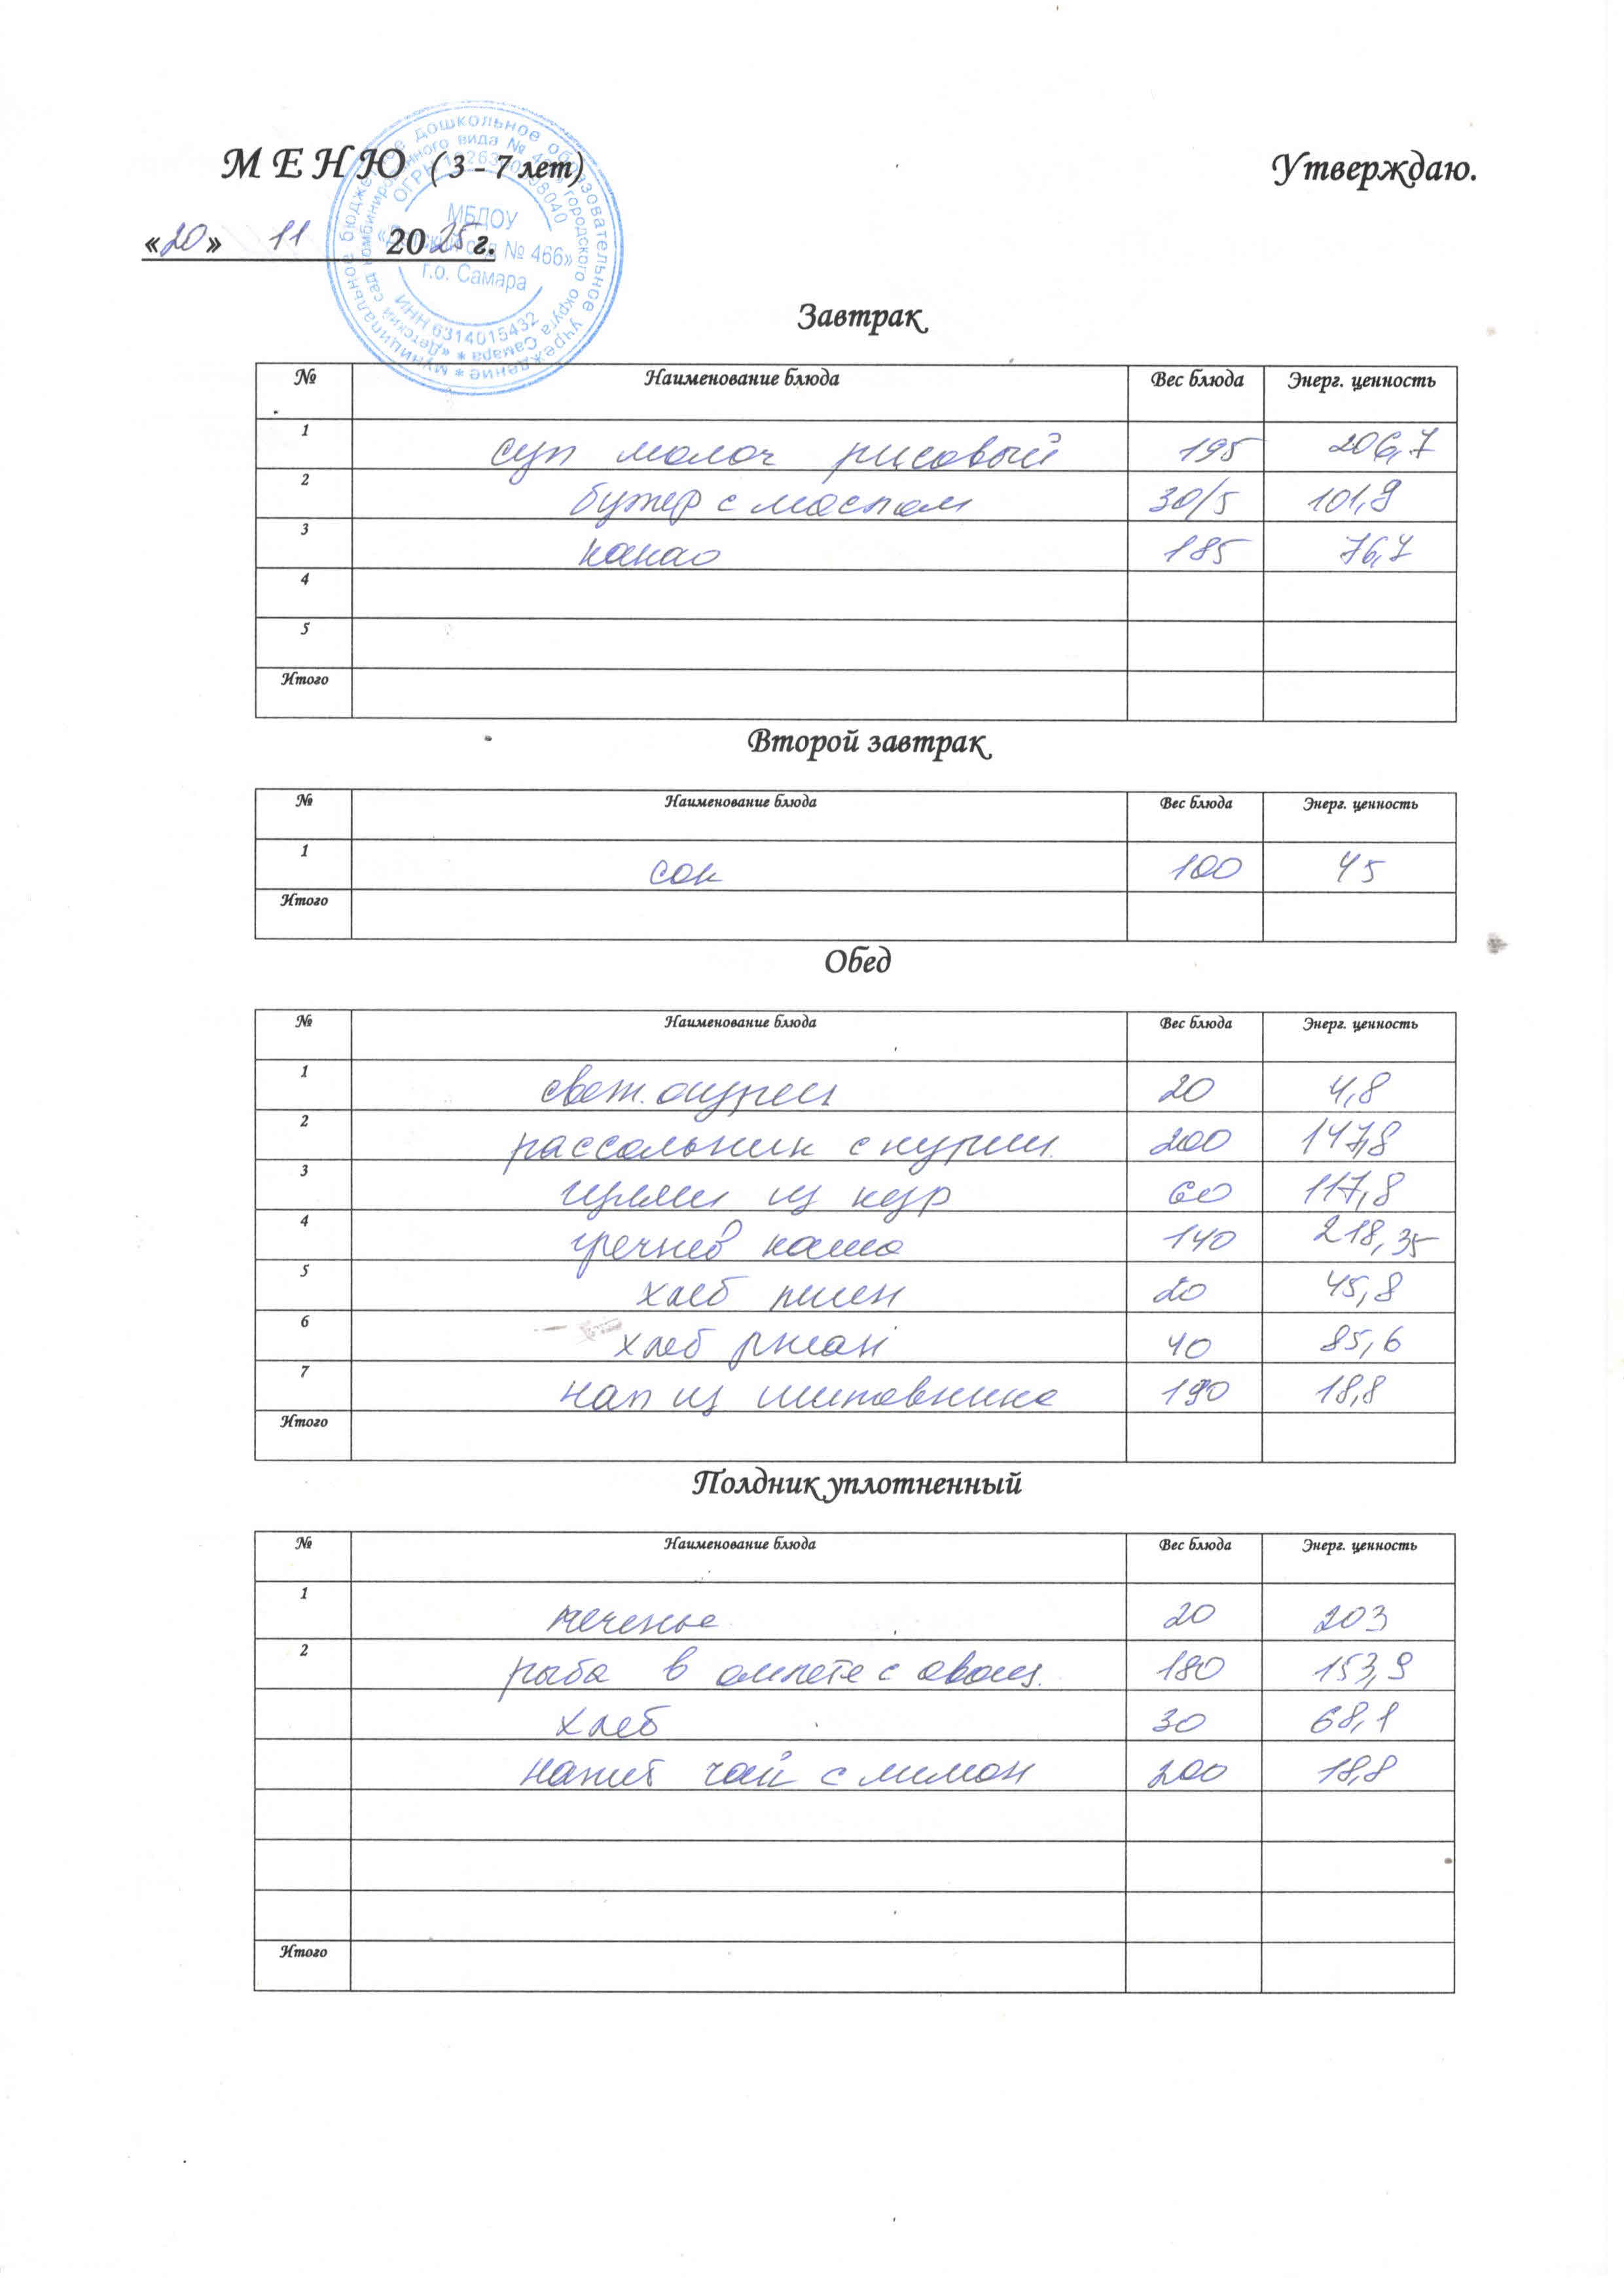 М Е Н Ю ( 3 - 7 лет)
Утверждаю.
«20» 11 2025 г.
муниципальное бюджетное дошкольное образовательное учреждение *
МБДОУ
«Детский сад № 466»
г.о. Самара
ИНН 6314015432
Завтрак
№ Наименование блюда Вес блюда Энерг. ценность
1 суп молоч рисовый 195 206,7
2 бутер с маслом 30/5 101,9
3 какао 185 76,7
4
5
Итого
Второй завтрак
№ Наименование блюда Вес блюда Энерг. ценность
1 сок 100 45
Итого
Обед
№ Наименование блюда Вес блюда Энерг. ценность
1 свеж. огурец 20 4,8
2 рассольник с куриц. 200 147,8
3 из кур 60 117,8
4 гречнев каша 140 218,35
5 хлеб пшен 20 45,8
6 хлеб ржан 40 85,6
7 нап из шиповника 190 18,8
Итого
Полдник уплотненный
№ Наименование блюда Вес блюда Энерг. ценность
1 печенье 20 203
2 рыба в омлете с овощ. 180 153,9
хлеб 30 68,1
чай с лимон 200 18,8
Итого